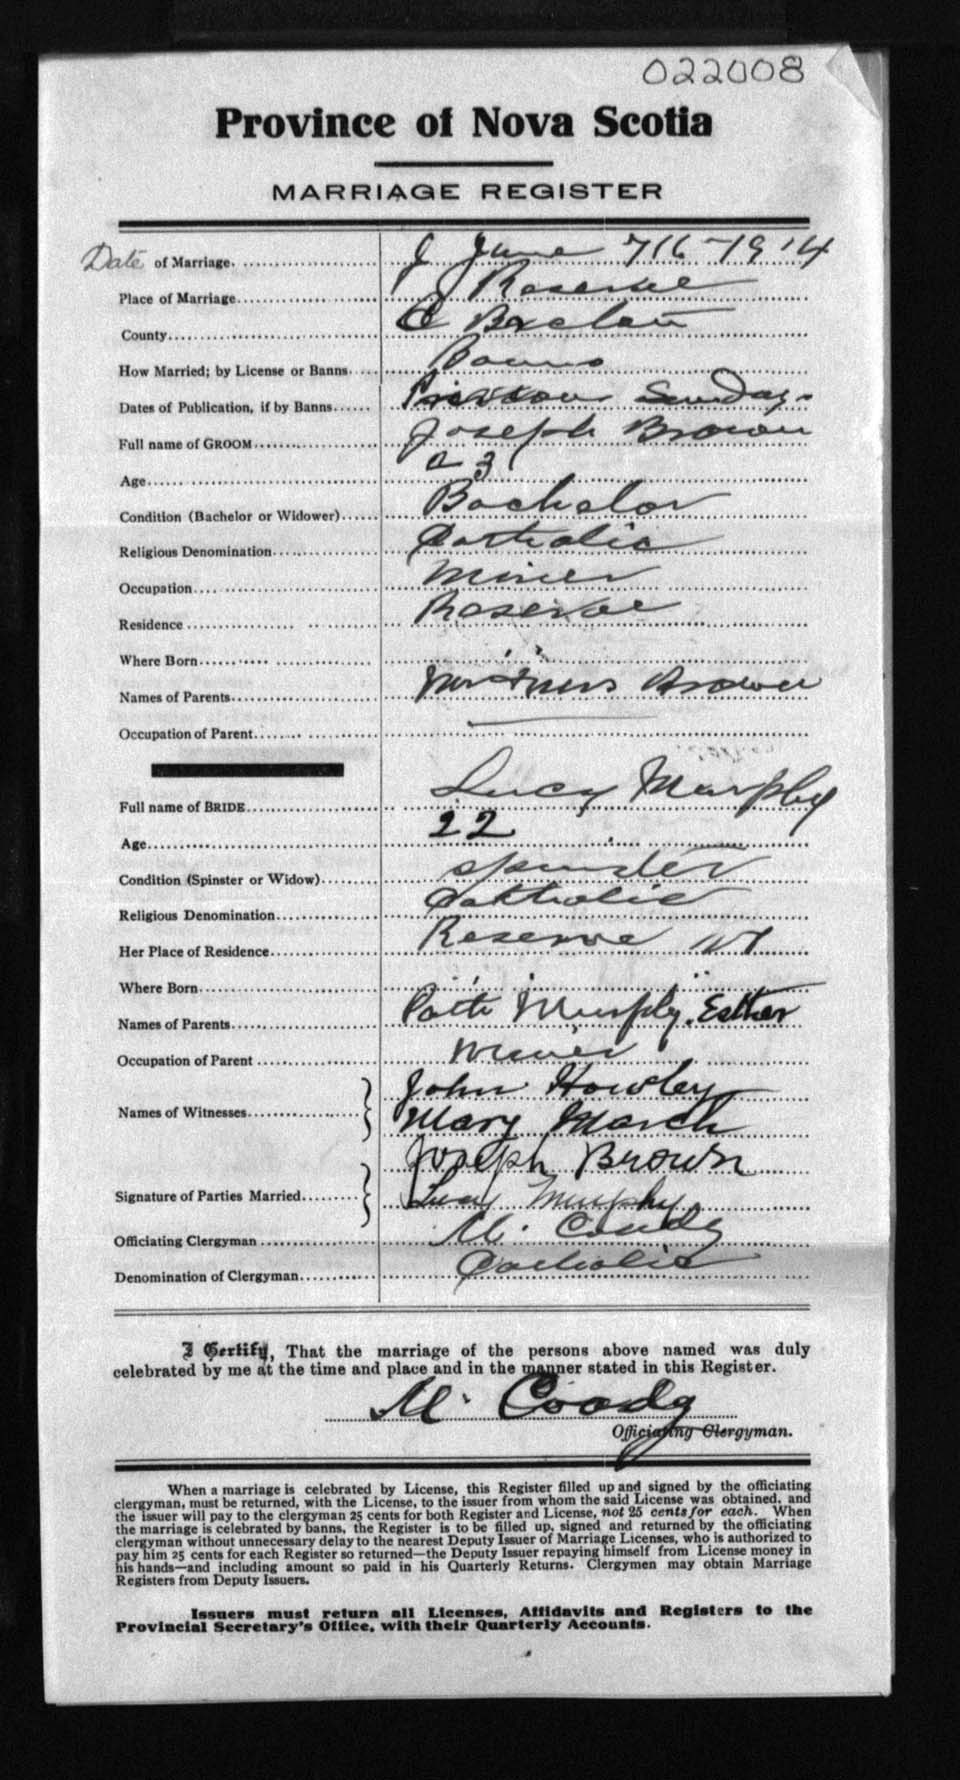 022008
Province of Nova Scotia
MARRIAGE REGISTER
Date of Marriage. June 1914
Place of Marriage Reserve
County C Breton
How Married; by License or Banns Banns
Dates of Publication, if by Banns Previous Sundays
Full name of GROOM Joseph Brown
Age 23
Condition (Bachelor or Widower) Bachelor
Religious Denomination Catholic
Occupation Miner
Residence Reserve
Where Born
Names of Parents Mr & Mrs Brown
Occupation of Parent
Full name of BRIDE Lucy Murphy
Age 22
Condition (Spinster or Widow) Spinster
Religious Denomination Catholic
Her Place of Residence Reserve
Where Born
Names of Parents Murphy. Esther
Occupation of Parent Miner
Names of Witnesses John Howley
Mary March
Joseph Brown
Signature of Parties Married Lucy Murphy
Officiating Clergyman M. Coady
Denomination of Clergyman Catholic
I Certify, That the marriage of the persons above named was duly
celebrated by me at the time and place and in the manner stated in this Register.
M. Coady
Officiating Clergyman.
When a marriage is celebrated by License, this Register filled up and signed by the officiating
clergyman, must be returned, with the License, to the issuer from whom the said License was obtained, and
the issuer will pay to the clergyman 25 cents for both Register and License, not 25 cents for each. When
the marriage is celebrated by banns, the Register is to be filled up, signed and returned by the officiating
clergyman without unnecessary delay to the nearest Deputy Issuer of Marriage Licenses, who is authorized to
pay him 25 cents for each Register so returned—the Deputy Issuer repaying himself from License money in
his hands—and including amount so paid in his Quarterly Returns. Clergymen may obtain Marriage
Registers from Deputy Issuers.
Issuers must return all Licenses, Affidavits and Registers to the
Provincial Secretary's Office, with their Quarterly Accounts.